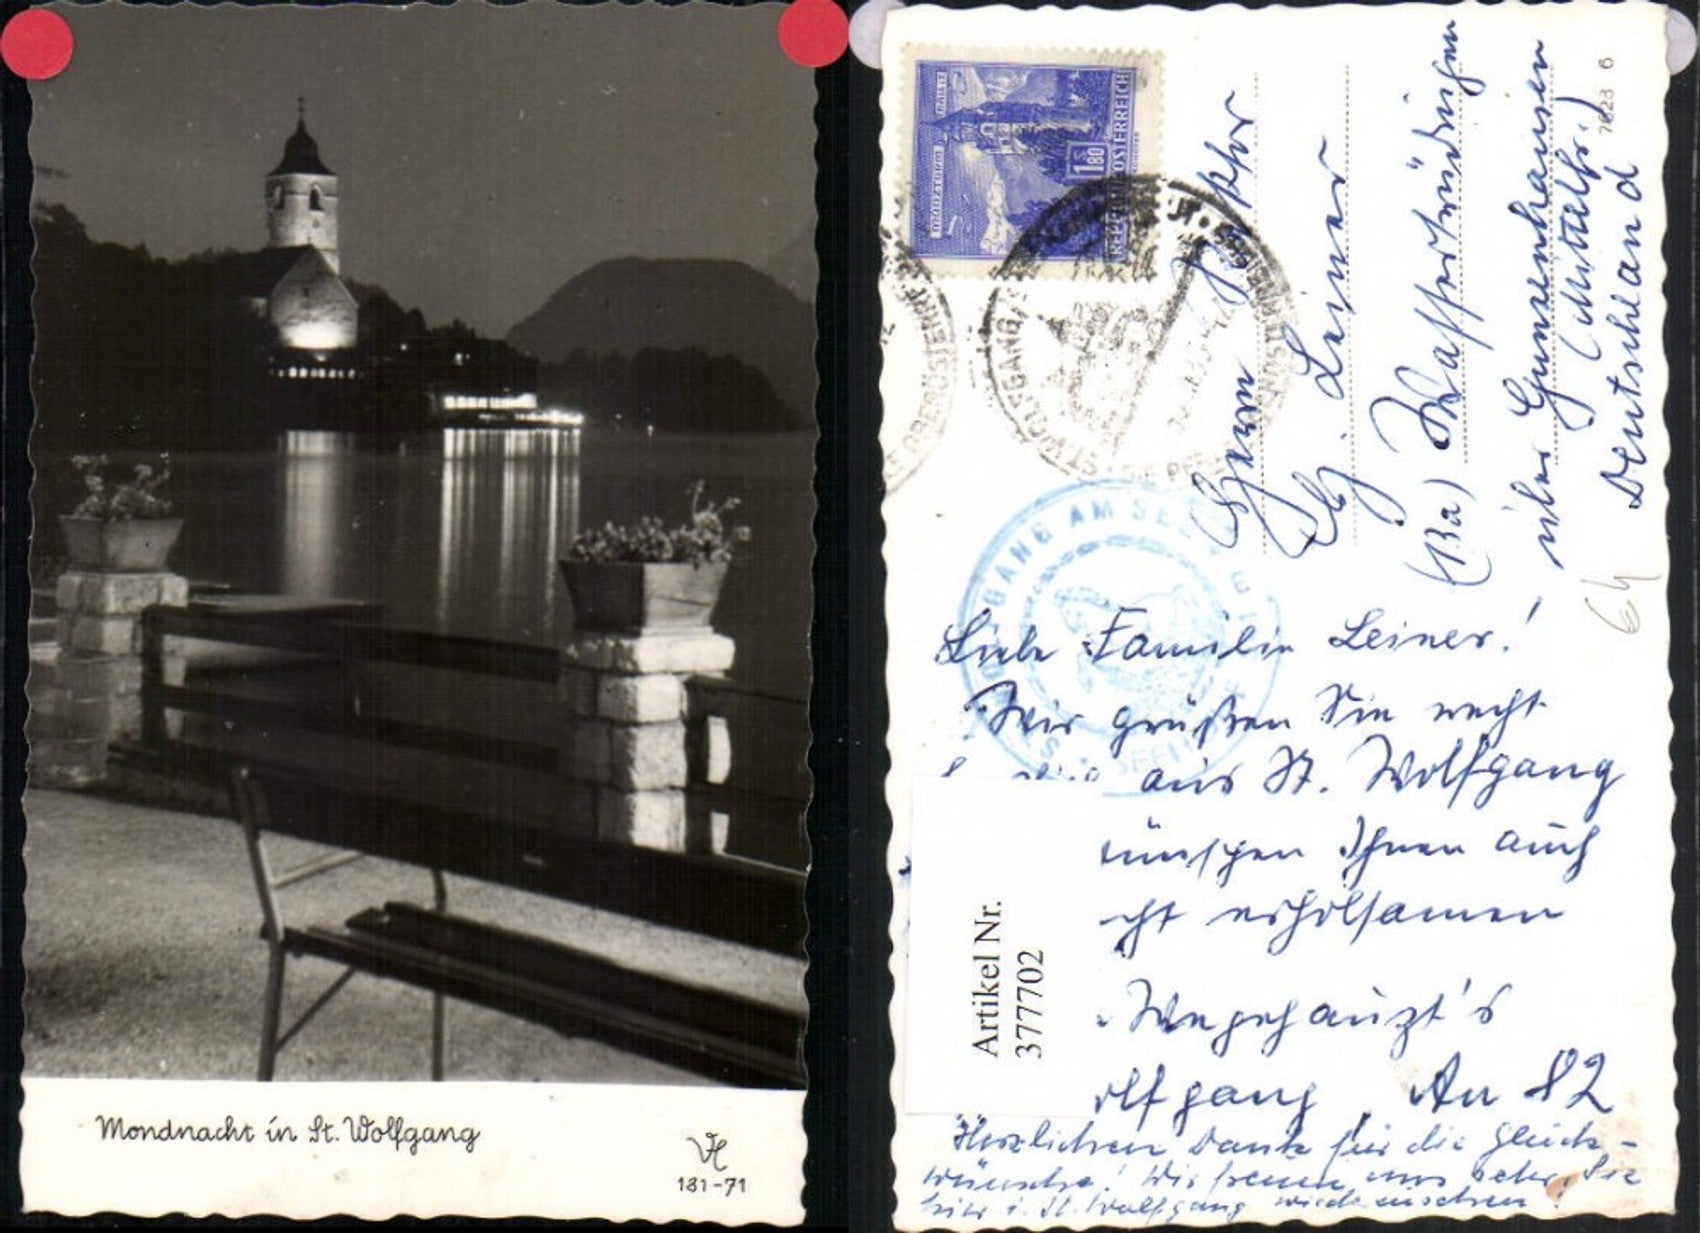 Mondnacht in St. Wolfgang
131-71
REPUBLIK ÖSTERREICH
S 1.80
GANG AM SEE
7623 6
Herrn
Leiner
(13a) Wassertrüdingen
über Gunzenhausen
(Mittelfr.)
Deutschland
Liebe Familie Leiner!
Wir grüßen Sie recht
aus St. Wolfgang
ünschen Ihnen auch
cht erholsamen
olfgang, Au 82
Herzlichen Dank für die Glück-
wünsche! Wir freuen uns sehr, Sie
hier i. St. Wolfgang wiederzusehen!
Artikel Nr.
377702